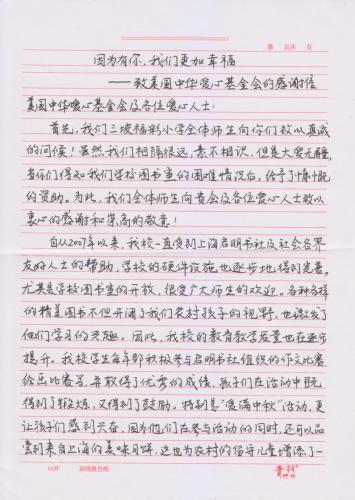 第 页共 页
因为有你，我们更加幸福
——致美国中华爱心基金会的感谢信
美国中华爱心基金会及各位爱心人士：
首先，我们三坡福利小学全体师生向你们致以真诚
的问候！虽然我们相隔很远，素不相识，但是大爱无疆，
当你们得知我们学校图书室的困难情况后，给予了慷慨
的资助。为此，我们全体师生向贵会及各位爱心人士致以
衷心的感谢和崇高的敬意！
自从2007年以来，我校一直得到上海启明书社及社会各界
友好人士的帮助，学校的硬件设施也逐步地得到完善，
尤其是学校图书室的开放，很受广大师生的欢迎。各种各样
的精美图书不但开阔了我们农村孩子的视野，也激发了
他们学习的兴趣。因此，我校的教育教学质量也在逐步
提升。我校学生每年都积极参与启明书社组织的作文比赛、
绘画比赛等，并取得了优秀的成绩，孩子们在活动中既
得到了锻炼，又得到了鼓励。特别是“爱满中秋”活动，更
让孩子们感到兴奋，因为他们在参与活动的同时，还可以品
尝到来自上海的美味月饼，这也为农村的留守儿童增添了一
16开 双线报告纸